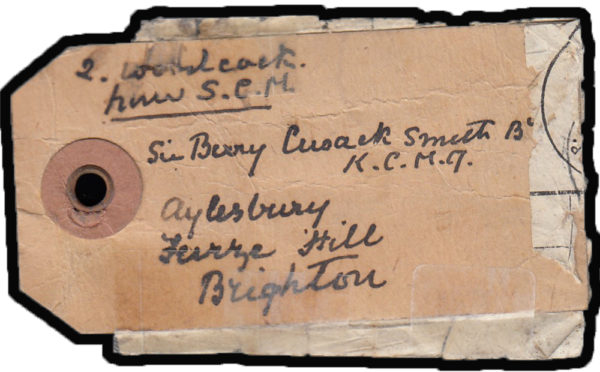 2. Woodcock.
from S.C.M
Sir Berry Cusack Smith Bt
K.C.M.G.
Aylesbury
Furze Hill
Brighton